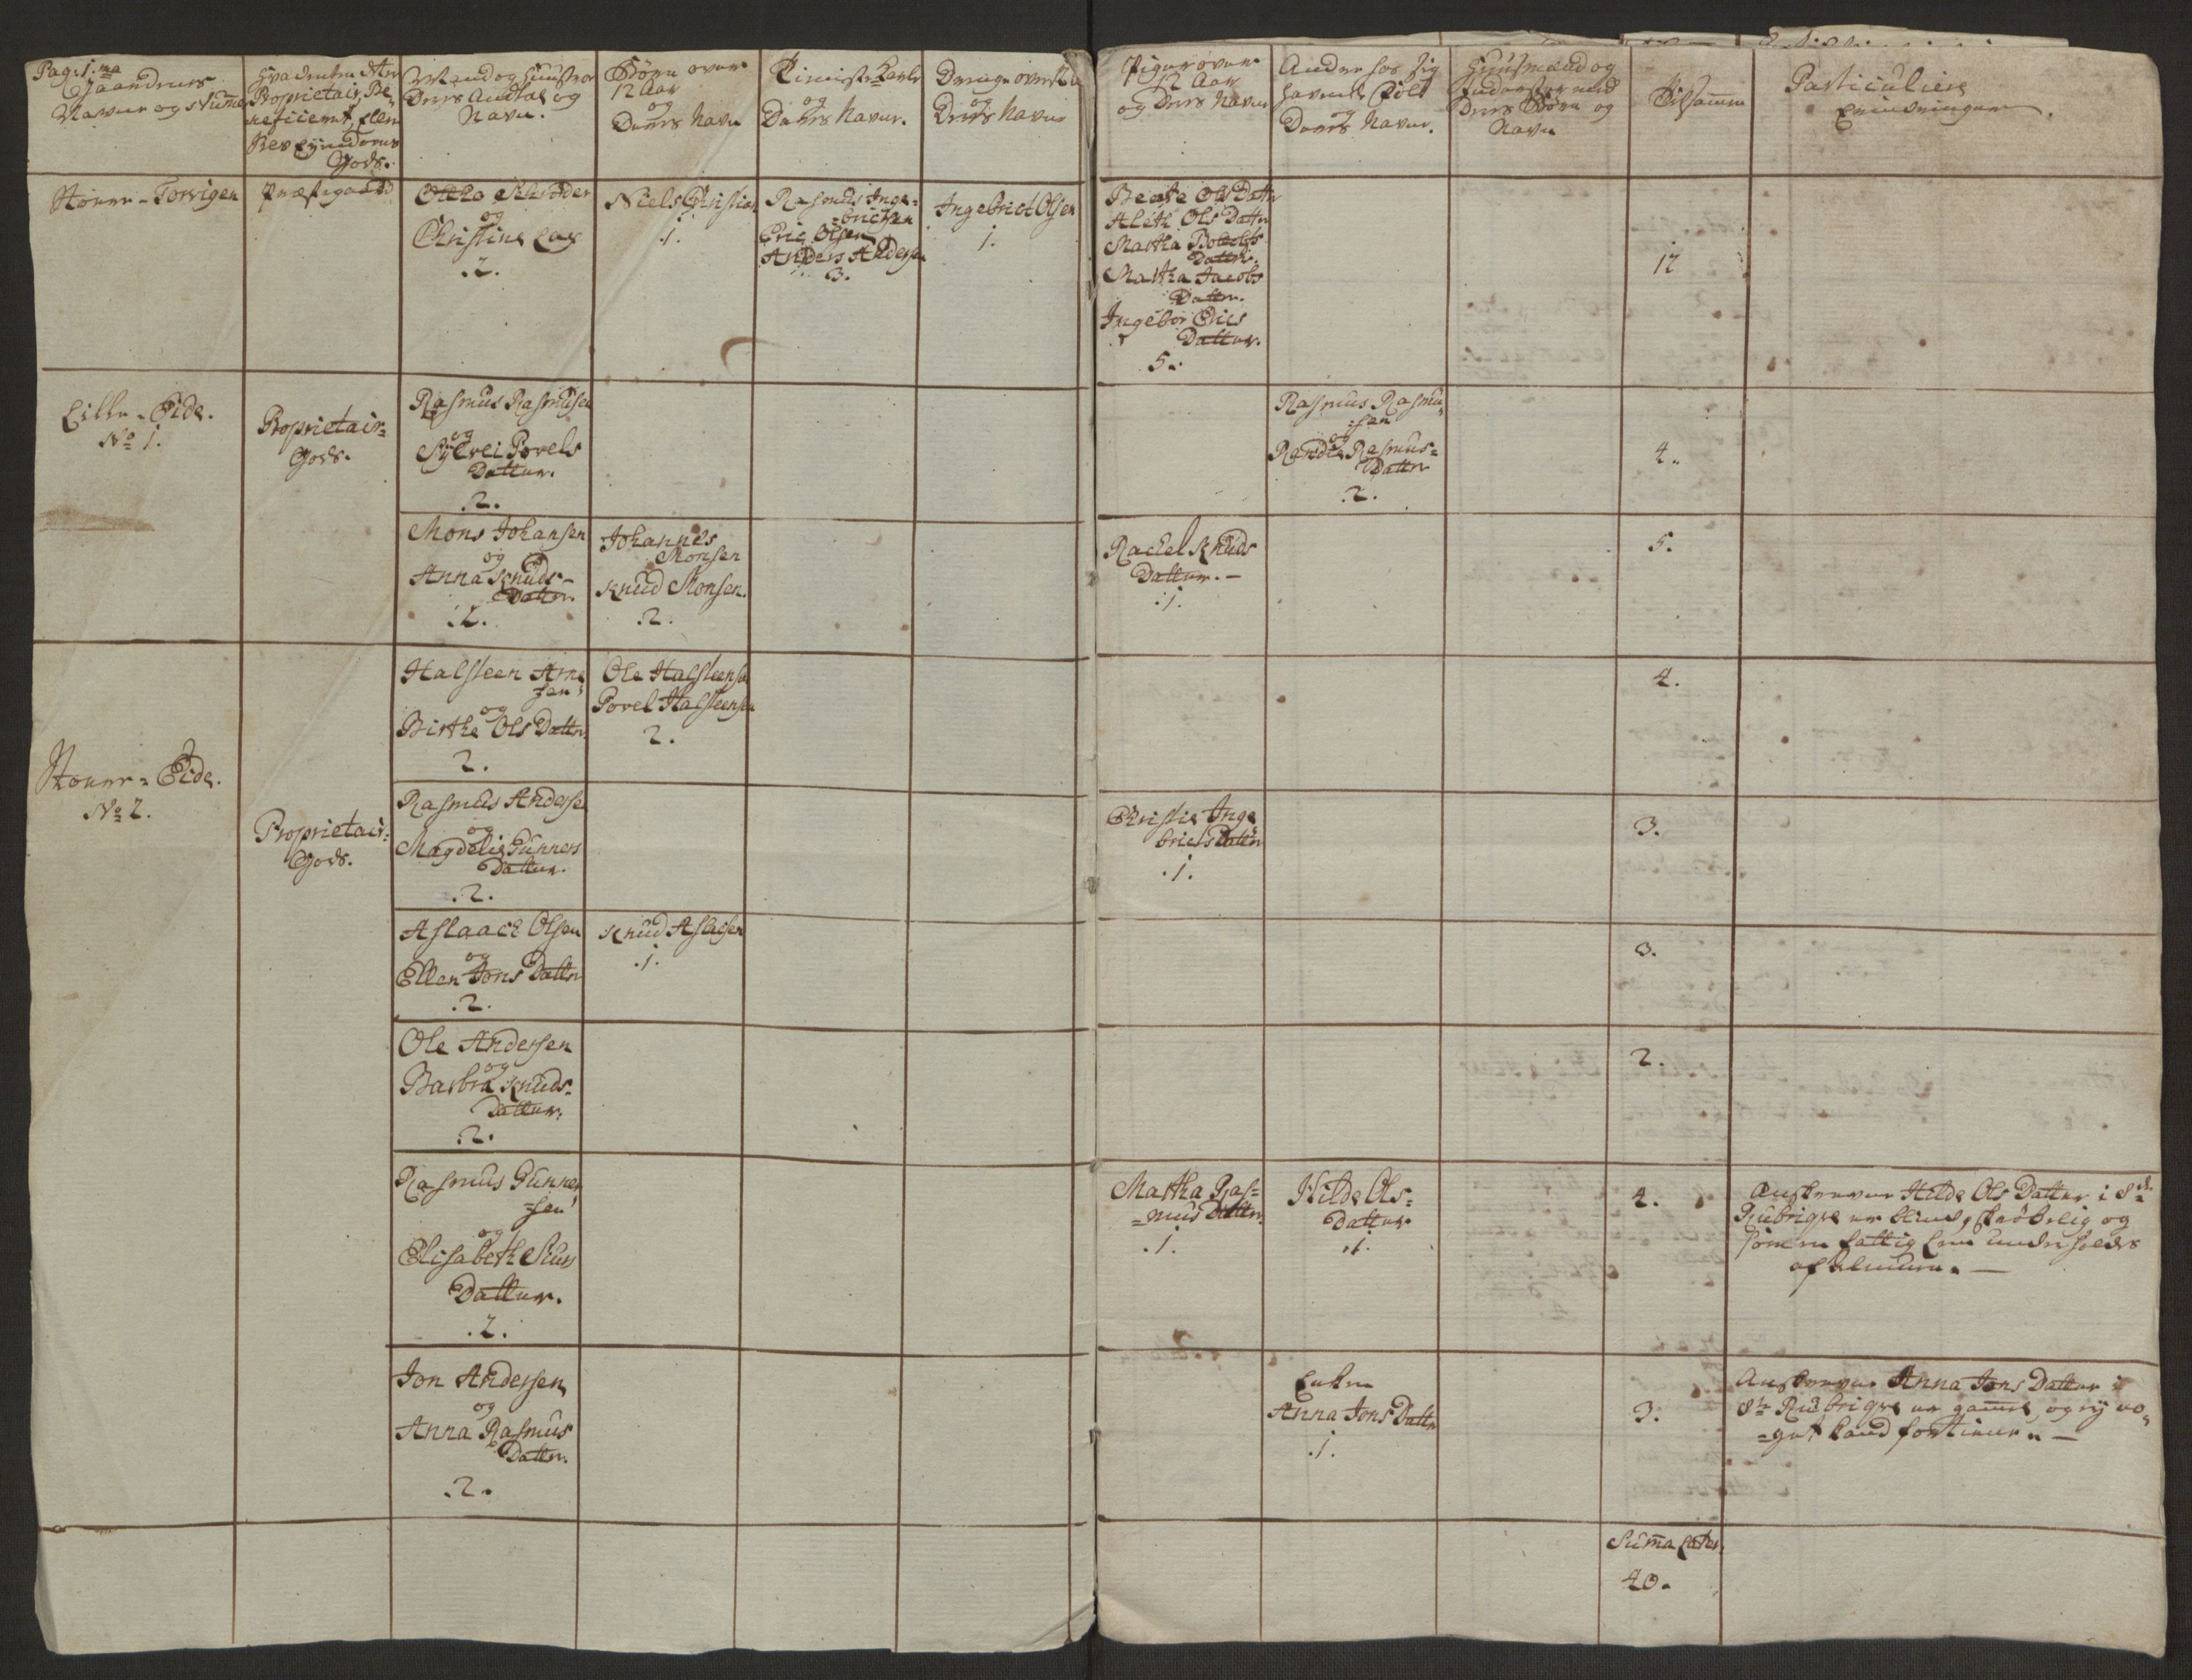 Pag: 1.ma
Gaardenes
Navne og Numer
Hvad enten det er
Proprietair, Be-
neficeret, eller
Selv Eyendoms
Gods.
Mænd og Hustroe
Deres Andtal og
Navn.
Børn over
12 Aar
og
Deres Navn
Tieniste Karle
og
Deres Navne.
Drenge over 12
og
Deres Navne
Piger over
12 Aar
og Deres Navne
Andre hos sig
havende Folk
og
Deres Navne.
Huusmænd og
Inderster med
Deres Børn og
Navn
Tilsamen
Particuliere
Erindringer.
Store-Torvigen
Præstegaard
Otto Schröder
og
Christine Lax
.2.
Niels Christian
.1.
Rasmus Inge-
brictsen
Eric Olsen
Anders Andersen
3.
Ingebrict Olsen
1.
Beate Ols Datter
Aleth Ols Datter
Martha Botolfs
Datter.
Martha Jacobs
Datter.
Ingebor Erics
Datter.
5.
12
Lille-Eide.
No 1.
Proprietair-
Gods.
Rasmus Rasmusen
og
Sylvei Povels
Datter.
.2.
Rasmus Rasmu-
sen
og
Randie Rasmus-
Datter
.2.
4.
Mons Johansen
og
Anna Knuds-
Datter.
.2.
Johannes
Monsen
Knud Monsen.
.2.
Rachel Knuds
Datter.-
.1.
5.
Store-Eide.
No 2.
Proprietair-
Gods.
Halsteen Arne
sen
og
Birthe Ols Datter
2.
Ole Halsteensen
Povel Halsteensen
2.
4.
Rasmus Andersen
og
Magdelie Gunners
Datter.
.2.
Christie Inge
bricts Datter
.1.
3.
Aslaack Olsen
og
Ellen Jons Datter
.2.
Knud Aslacsen
.1.
3.
Ole Andersen
og
Barbra Knuds-
Datter.
.2.
2.
Rasmus Gunner
sen
og
Elisabeth Siurs
Datter.
.2.
Martha Ras-
mus Datter.
.1.
Hilde Ols-
Datter.
.1.
4.
Anførende Hilde Ols Datter i 8de
Rubrique er blind, skrøbelig og
som en fattig Lem underholdes
af Almuen.-
Jon Andersen
og
Anna Rasmus
Datter.
.2.
Enken
Anna Jons Datter
.1.
3.
Anførende Anna Jons Datter i
8de Rubrique er gamel, og ey no-
get kand fortiene.-
Suma Lateris
40.